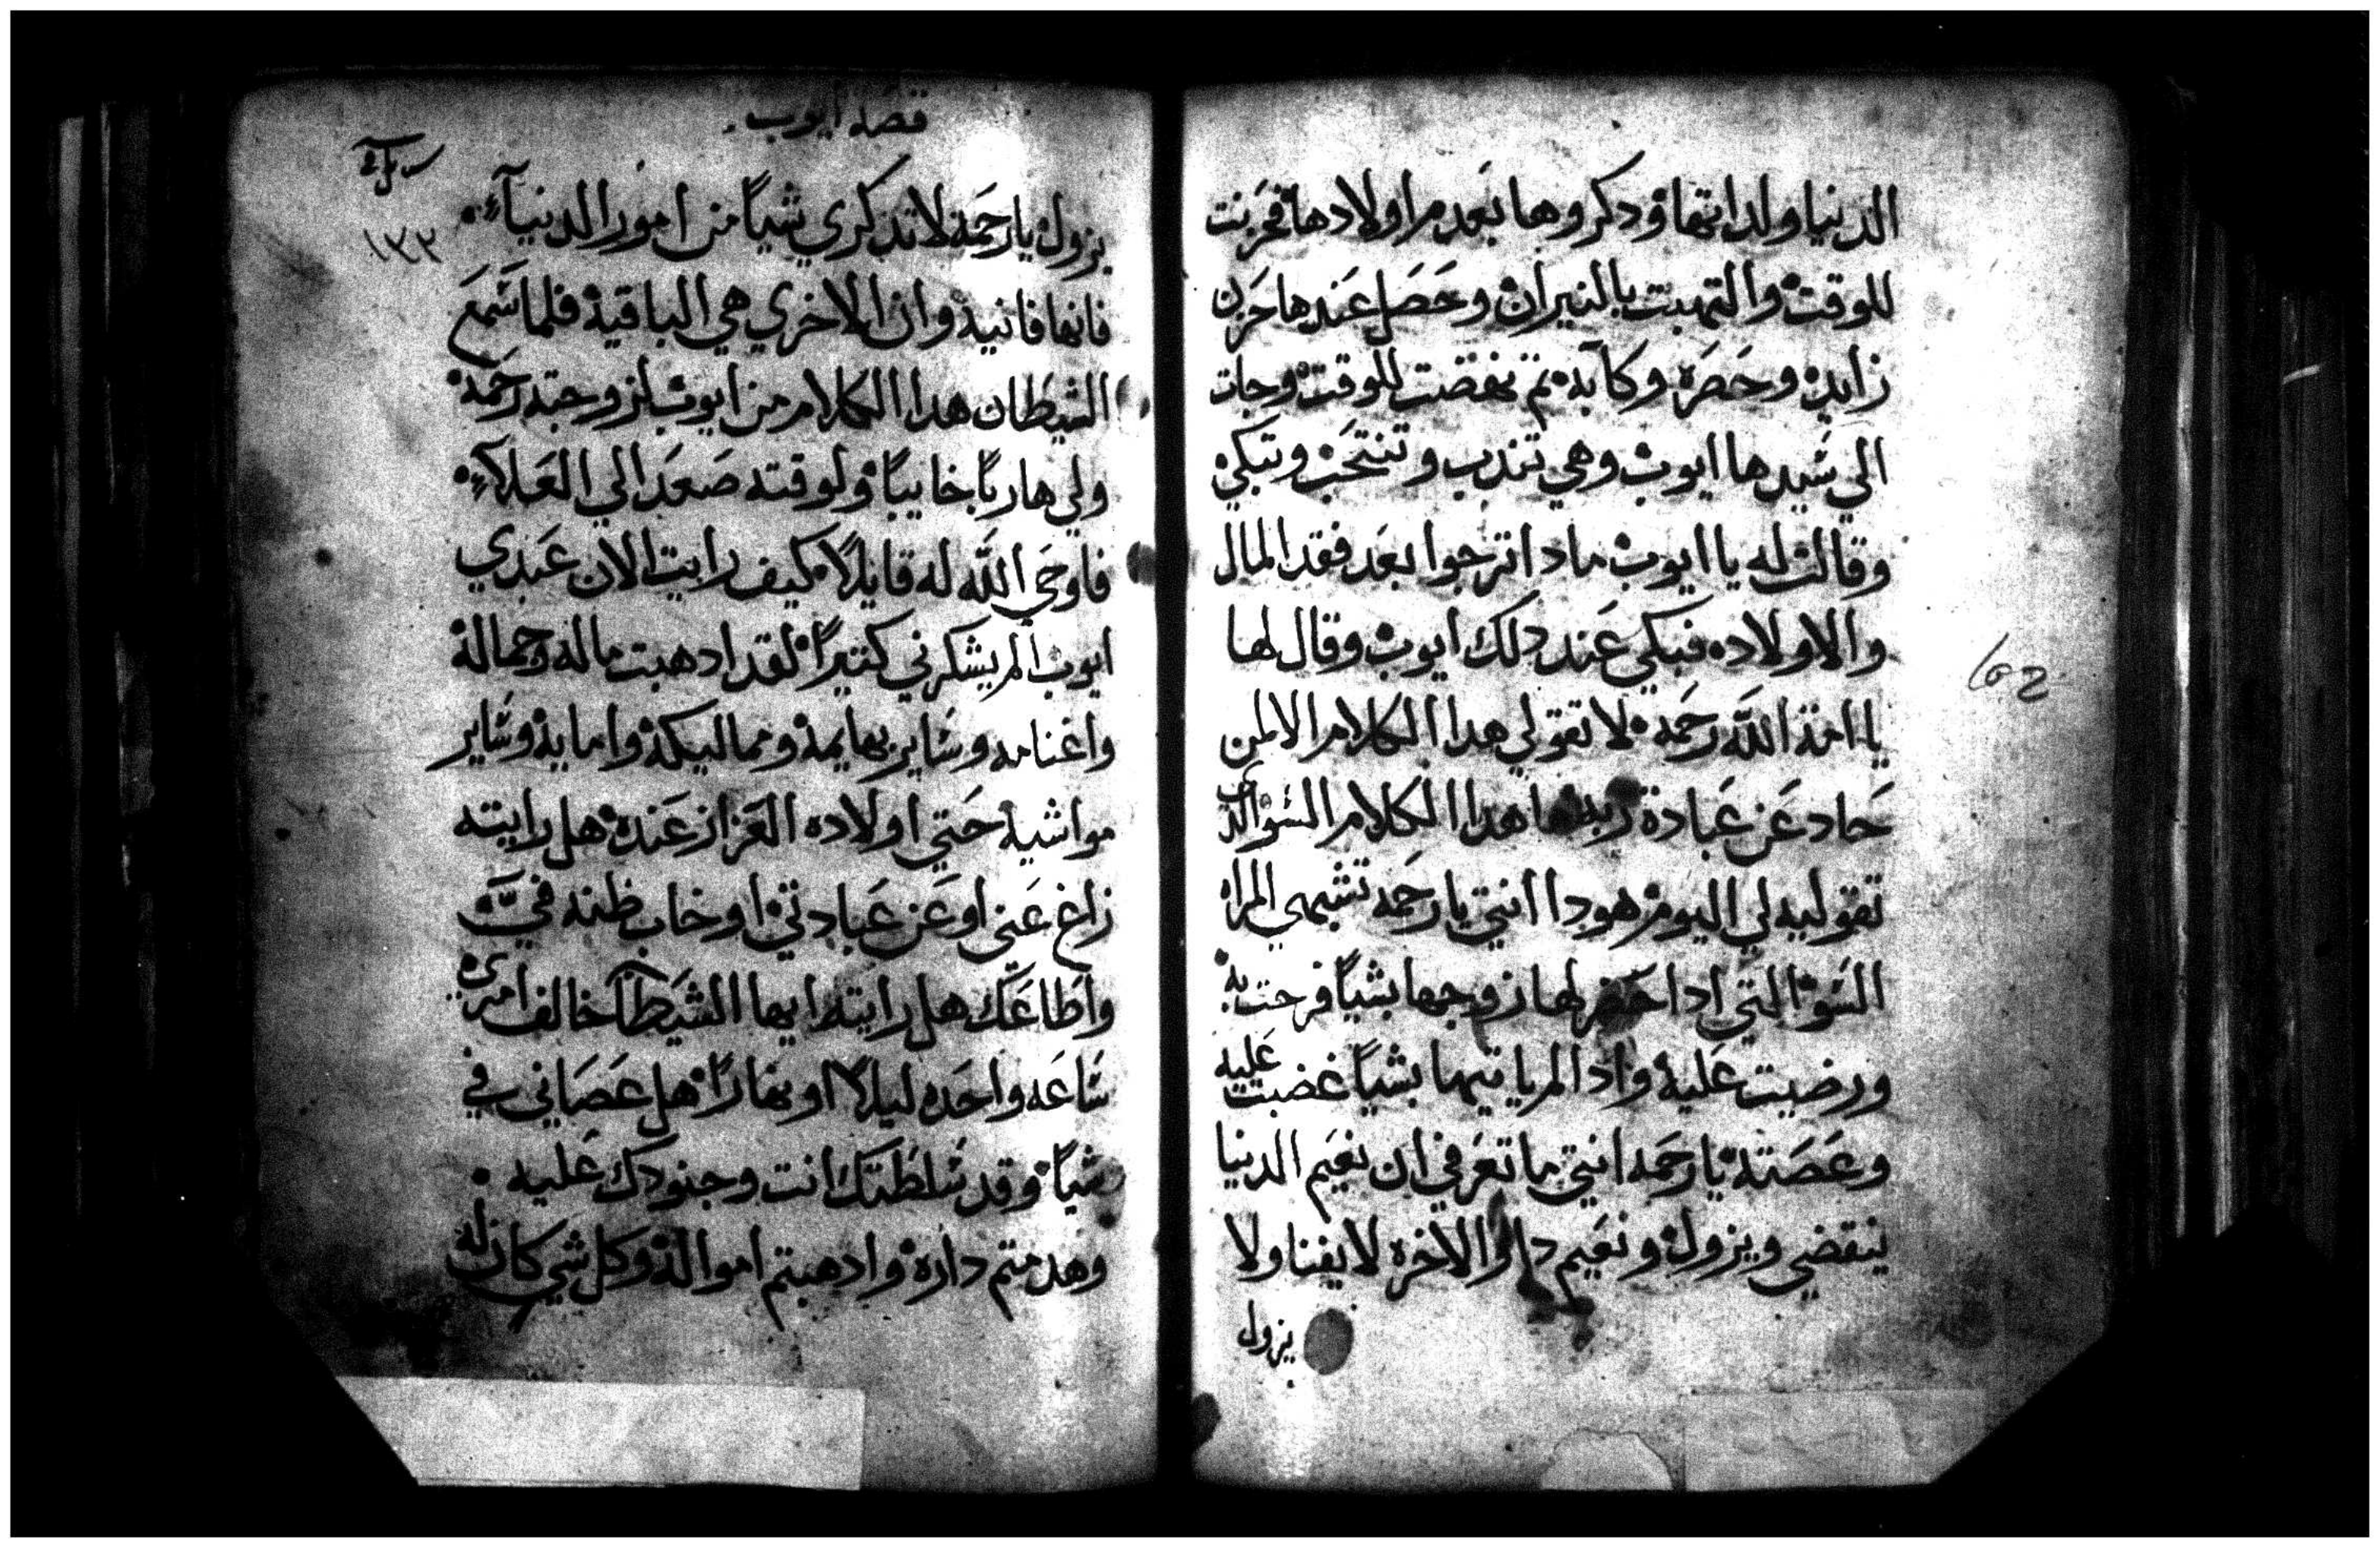 الدنيا ولداتها ودكروها بعدم اولادها فحزنت
للوقت والتهبت بالنيران وحصل عندها حزن
زايد وحصره وكآبه تم نهضت للوقت وجات
الي سيدها ايوب وهي تندب وتنتحب وتبكي
وقالت له يا ايوب مادا ترجوا بعد فقد المال
والاولاده فبكي عند دلك ايوب وقال لها
يا امة الله رحمه لا تقولي هدا الكلام الا لمن
حاد عن عبادة ربه ما هدا الكلام السو الدي
تقوليه لي اليوم هودا انتي يا رحمه تشبهي المراه
السو التي ادا حضر لها زوجها بشياً فرحت به
ورضيت عليه واد الم ياتيها بشياً غضبت عليه
وعصته يا رحمه انتي ما تعرفي ان نعيم الدنيا
ينقضي ويزول ونعيم دار الاخره لا يفنا ولا
يزول
قصة ايوب
١٣٣
يزول يا رحمه لا تدكري شياً من امور الدنيآء
فانها فانيه وان الاخري هي الباقيه فلما سمع
الشيطان هدا الكلام من ايوب لزوجته رحمه
ولي هارباً خايباً ولوقته صعد الي العلآء
فاوحي الله له قايلاً كيف رايت الان عبدي
ايوب الم يشكرني كتيراً لقد ادهبت ماله وجماله
واغنامه وساير بهايمه ومماليكه وامايه وساير
مواشيه حتي اولاده العزاز عنده هل رايته
زاغ عني او عن عبادتي او خاب ظنه فيَّ
واطاعك هل رايته ايها الشيطآ خالف امري
ساعه واحده ليلاً او نهاراً هل عصاني في
شياً وقد سلطتك انت وجنودك عليه
وهدمتم داره وادهبتم امواله وكل شي كان له